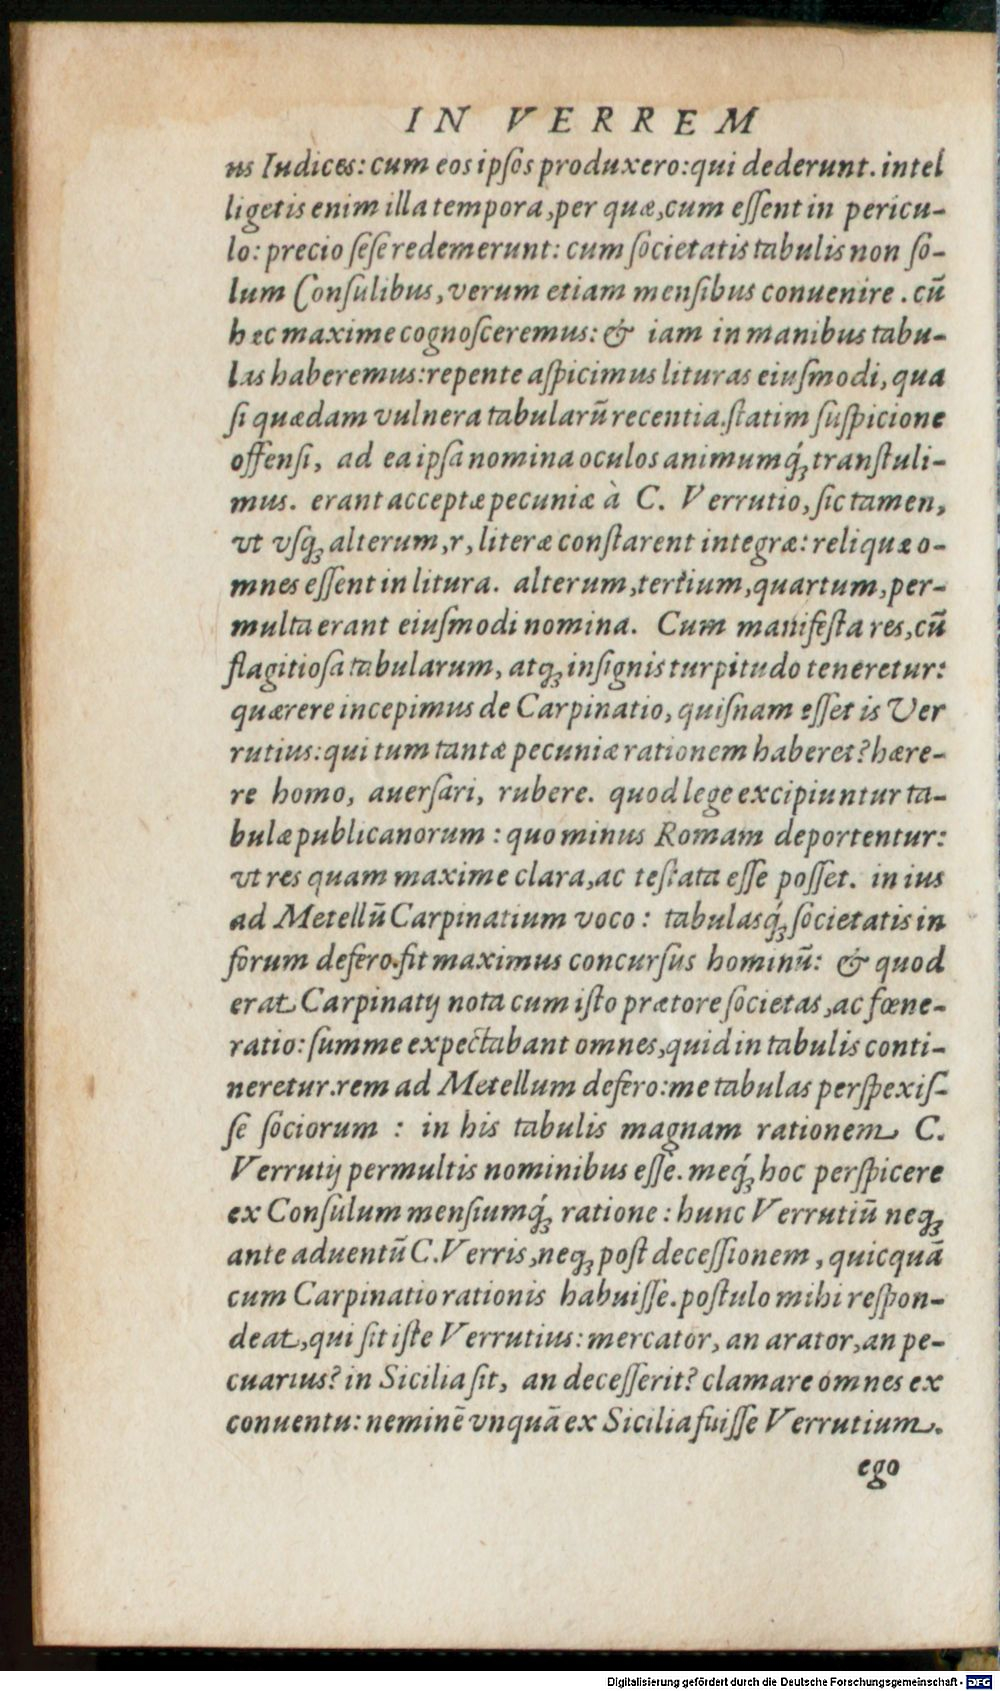 IN VERREM
us Iudices: cum eos ipſos produxero: qui dederunt. intel
ligetis enim illa tempora, per quæ, cum eſſent in pericu-
lo: precio ſeſe redemerunt: cum ſocietatis tabulis non ſo-
lum Conſulibus, verum etiam menſibus conuenire. cū
hęc maxime cognoſceremus: & iam in manibus tabu-
las haberemus: repente aſpicimus lituras eiuſmodi, qua
ſi quædam vulnera tabularū recentia. ſtatim ſuſpicione
offenſi, ad ea ipſa nomina oculos animumq́ꝫ tranſtuli-
mus. erant acceptæ pecuniæ à C. Verrutio, ſic tamen,
vt vſqꝫ alterum, r, literæ conſtarent integræ: reliquæ o-
mnes eſſent in litura. alterum, tertium, quartum, per-
multa erant eiuſmodi nomina. Cum manifeſta res, cū
flagitioſa tabularum, atqꝫ inſignis turpitudo teneretur:
quærere incepimus de Carpinatio, quiſnam eſſet is Ver
rutius: qui tum tantæ pecuniæ rationem haberet? hære-
re homo, auerſari, rubere. quod lege excipiuntur ta-
bulæ publicanorum: quo minus Romam deportentur:
vt res quam maxime clara, ac teſtata eſſe poſſet. in ius
ad Metellū Carpinatium voco: tabulasq́ꝫ ſocietatis in
forum defero. fit maximus concurſus hominū: & quod
erat Carpinatij nota cum iſto prætore ſocietas, ac fœne-
ratio: ſumme expectabant omnes, quid in tabulis conti-
neretur. rem ad Metellum defero: me tabulas perſpexiſ-
ſe ſociorum: in his tabulis magnam rationem C.
Verrutij permultis nominibus eſſe. meq́ꝫ hoc perſpicere
ex Conſulum menſiumq́ꝫ ratione: hunc Verrutiū neqꝫ
ante aduentū C. Verris, neqꝫ poſt deceſſionem, quicquā
cum Carpinatio rationis habuiſſe. poſtulo mihi reſpon-
deat, qui ſit iſte Verrutius: mercator, an arator, an pe-
cuarius? in Sicilia ſit, an deceſſerit? clamare omnes ex
conuentu: neminē vnquā ex Sicilia fuiſſe Verrutium.
ego
Digitalisierung gefördert durch die Deutsche Forschungsgemeinschaft - DFG